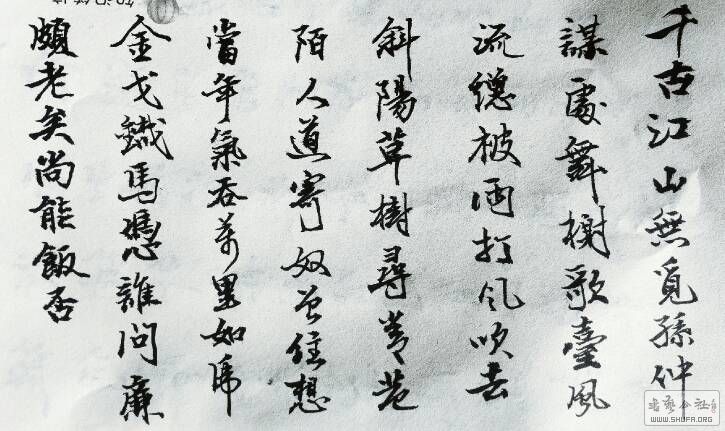 千古江山無覓孫仲
謀處舞榭歌臺風
流總被雨打风吹去
斜陽草樹尋常巷
陌人道寄奴曾住想
當年氣吞萬里如虎
金戈鐵馬憑誰問廉
頗老矣尚能飯否
书艺公社
WWW.SHUFA.ORG